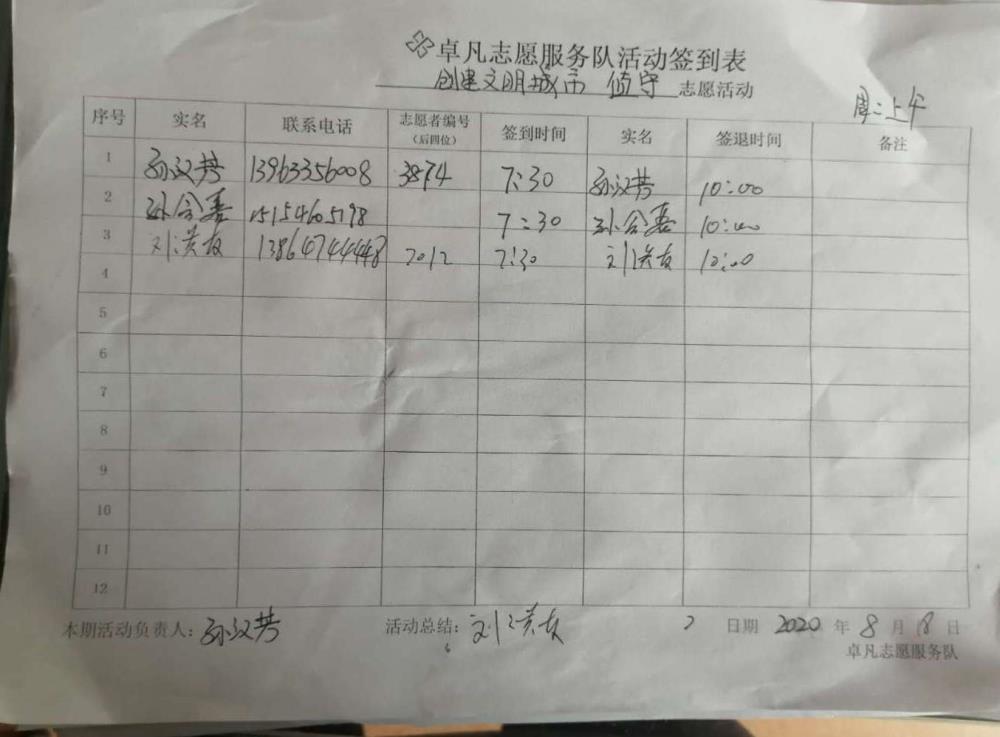 卓凡志愿服务队活动签到表
创建文明城市 值守 志愿活动
周二上午
序号 实名 联系电话 志愿者编号(后四位) 签到时间 实名 签退时间 备注
1 孙汉芬 13963356008 3874 7:30 孙汉芬 10:00
2 孙会喜 15154605198 7:30 孙会喜 10:00
3 刘洪友 13864744448 2012 7:30 刘洪友 10:00
4
5
6
7
8
9
10
11
12
本期活动负责人: 孙汉芬 活动总结: 刘洪友 日期 2020 年 8 月 18 日
卓凡志愿服务队